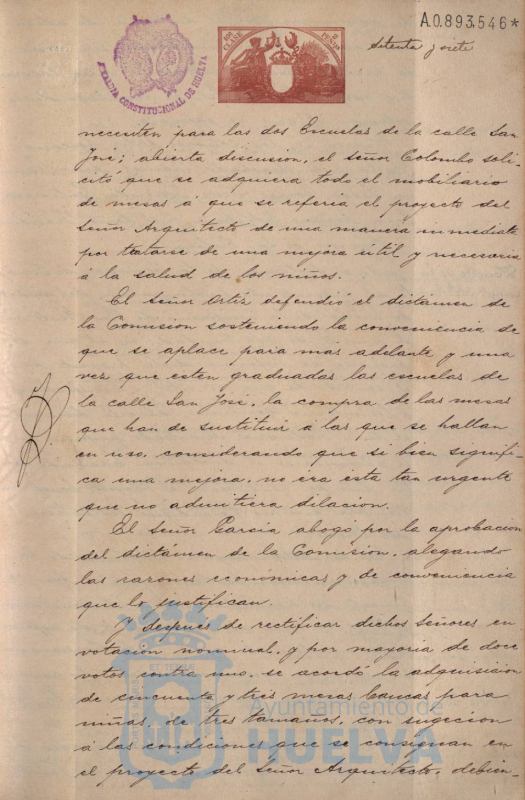 A.0.893.546*
10ª CLASE
2 PESETAS
Setenta y siete
ALCALDIA CONSTITUCIONAL DE HUELVA
necesiten para las dos Escuelas de la calle San
José; abierta discusion, el señor Colombo soli-
citó que se adquiera todo el mobiliario
de mesas á que se referia el proyecto del
Señor Arquitecto de una manera inmediata
por tratarse de una mejora útil y necesaria
á la salud de los niños.
El Señor Ortiz defendió el dictámen de
la Comision sosteniendo la conveniencia de
que se aplace para más adelante y una
vez que esten graduadas las escuelas de
la calle San José, la compra de las mesas
que han de sustituir á las que se hallan
en uso, considerando que si bien signifi-
ca una mejora, no era esta tan urgente
que no admitiera dilacion.
El Señor García abogó por la aprobacion
del dictámen de la Comision, alegando
las razones económicas y de conveniencia
que lo justifican.
Y despues de rectificar dichos Señores en
votacion nominal, y por mayoria de doce
votos contra uno, se acordó la adquisicion
de cincuenta y tres mesas bancas para
niñas, de tres tamaños, con sugecion
á las condiciones que se consignan en
el proyecto del Señor Arquitecto, debien-
Ayuntamiento de
HUELVA